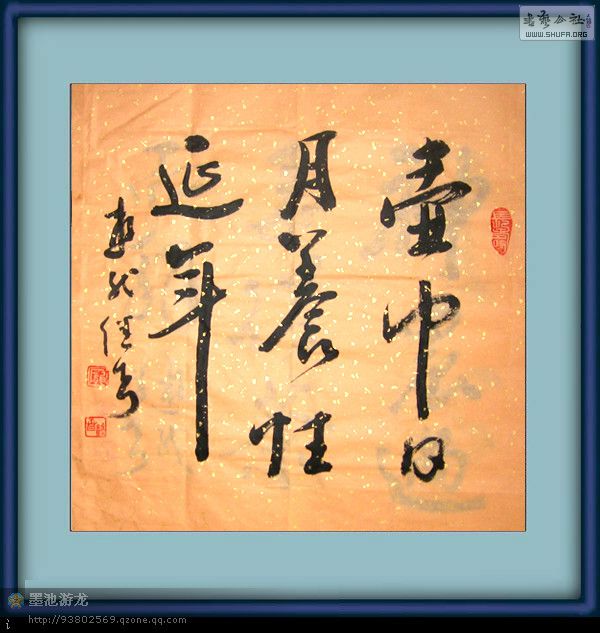 書藝公社
WWW.SHUFA.ORG
壺中日
月養性
延年
书
墨池游龙
http://93802569.qzone.qq.com